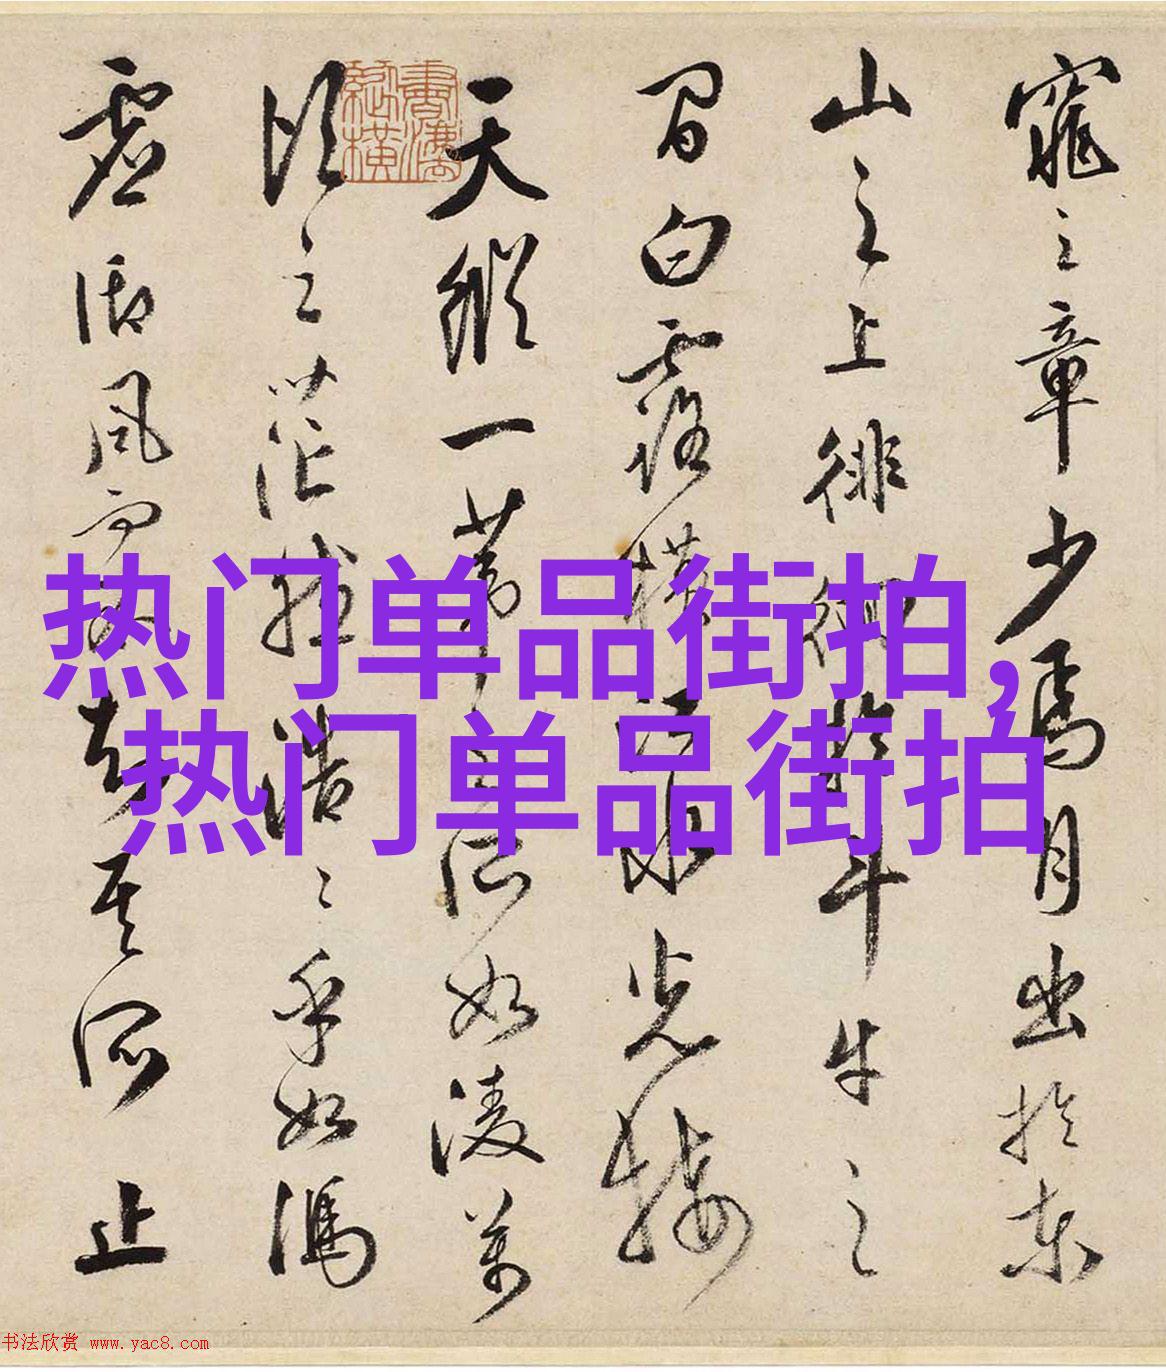 窕之章少焉月出於東
山之上徘徊於斗牛之
間白露橫江水光接
天縱一葦之所如凌萬
頃之茫然浩〻乎如馮
虛御風而不知其所止
热门单品街拍,
热门单品街拍
书法欣赏 www.yac8.com